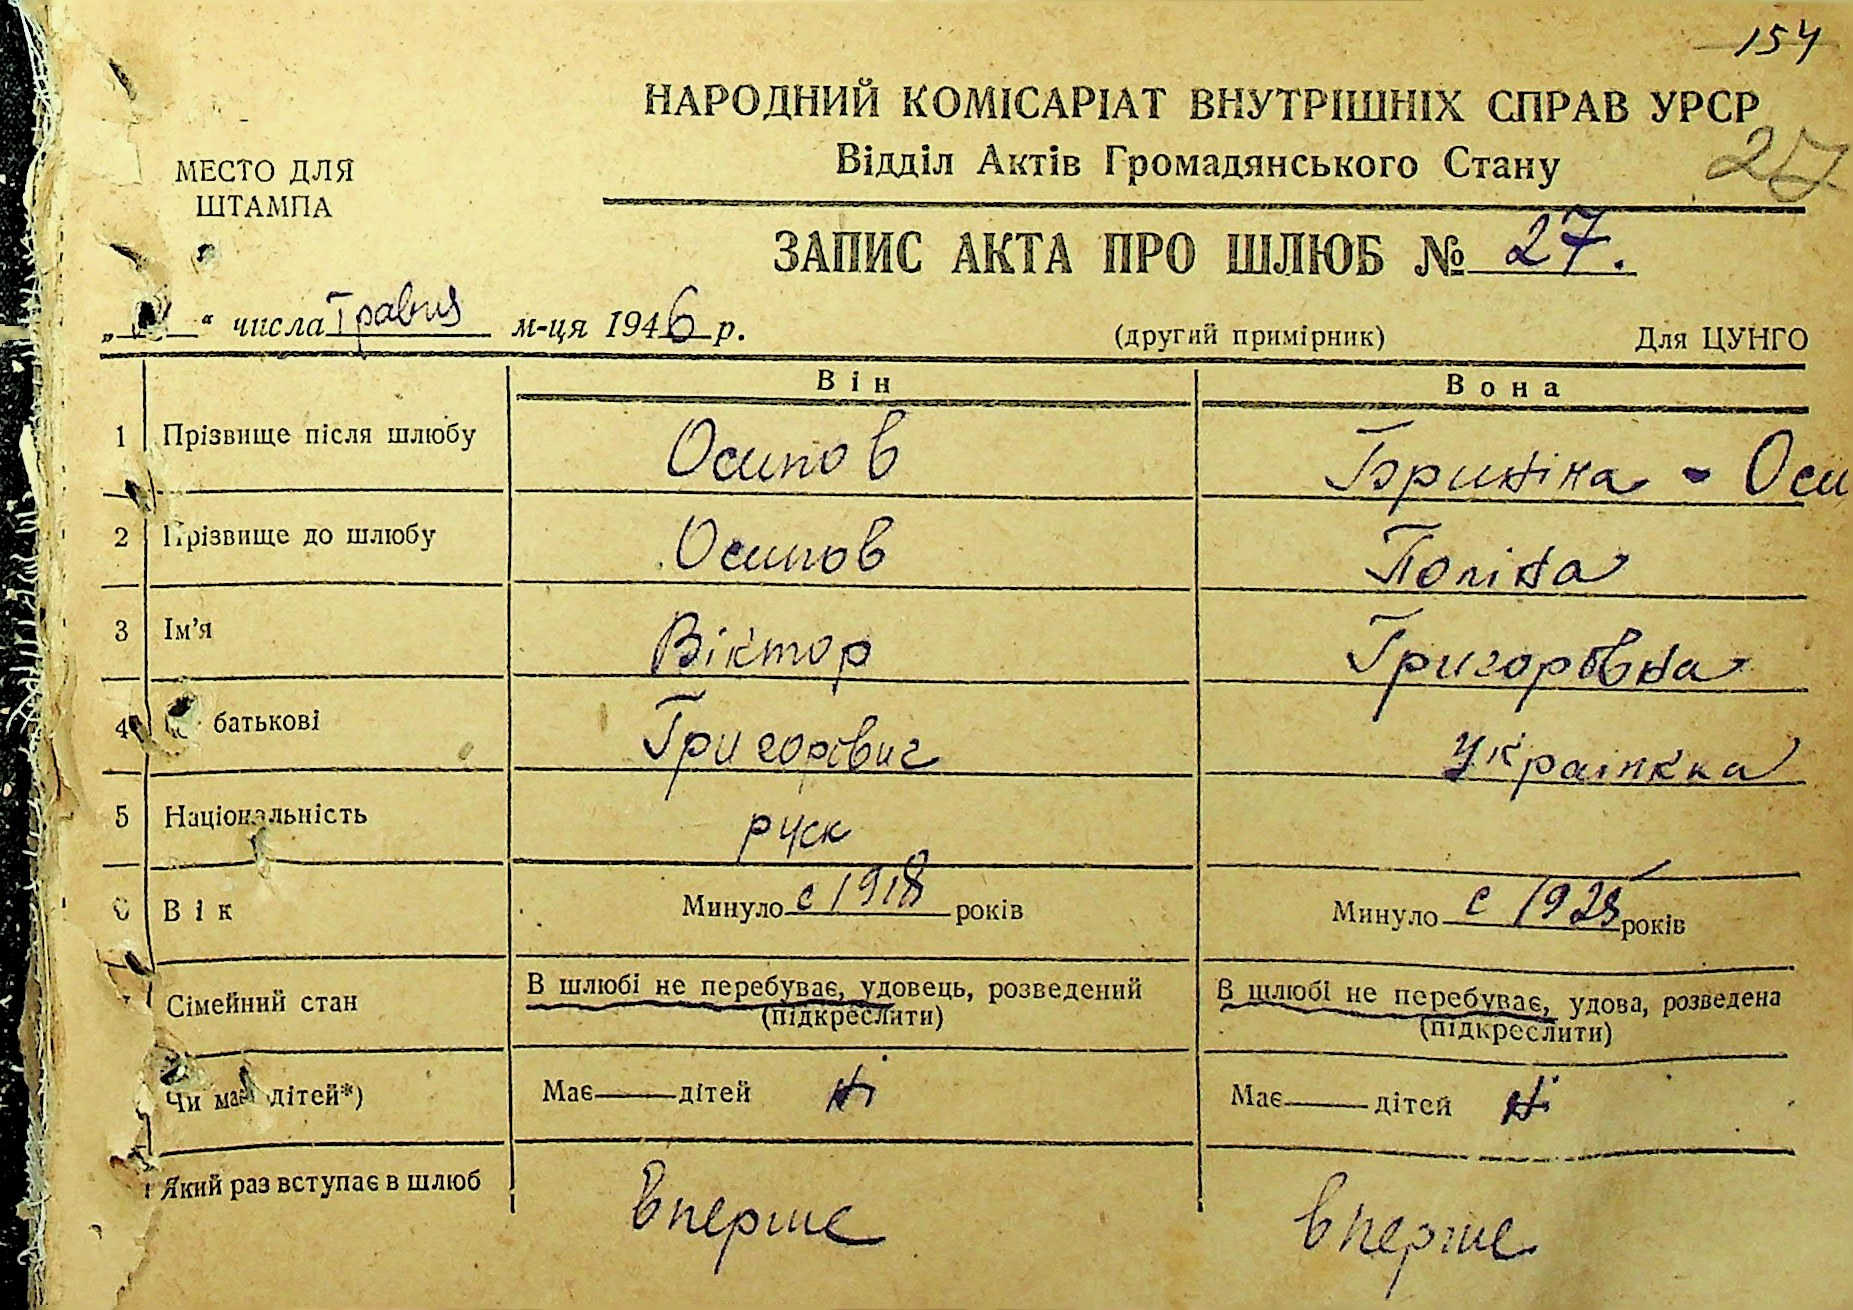 154
НАРОДНИЙ КОМІСАРІАТ ВНУТРІШНІХ СПРАВ УРСР
Відділ Актів Громадянського Стану
27
МЕСТО ДЛЯ
ШТАМПА
ЗАПИС АКТА ПРО ШЛЮБ № 27.
„ “ числа Травня м-ця 1946 р.
(другий примірник) Для ЦУНГО
Він Вона
1 Прізвище після шлюбу Осипов - Оси
2 Прізвище до шлюбу Осипов Поліна
3 Ім'я Віктор Григорівна
4 батькові Григорівич Українка
5 Національність руск
6 Вік Минуло с 1918 років Минуло с 1925 років
Сімейний стан В шлюбі не перебуває, удовець, розведений В шлюбі не перебуває, удова, розведена
(підкреслити) (підкреслити)
Чи має дітей*) Має дітей Ні Має дітей Ні
Який раз вступає в шлюб вперше вперше